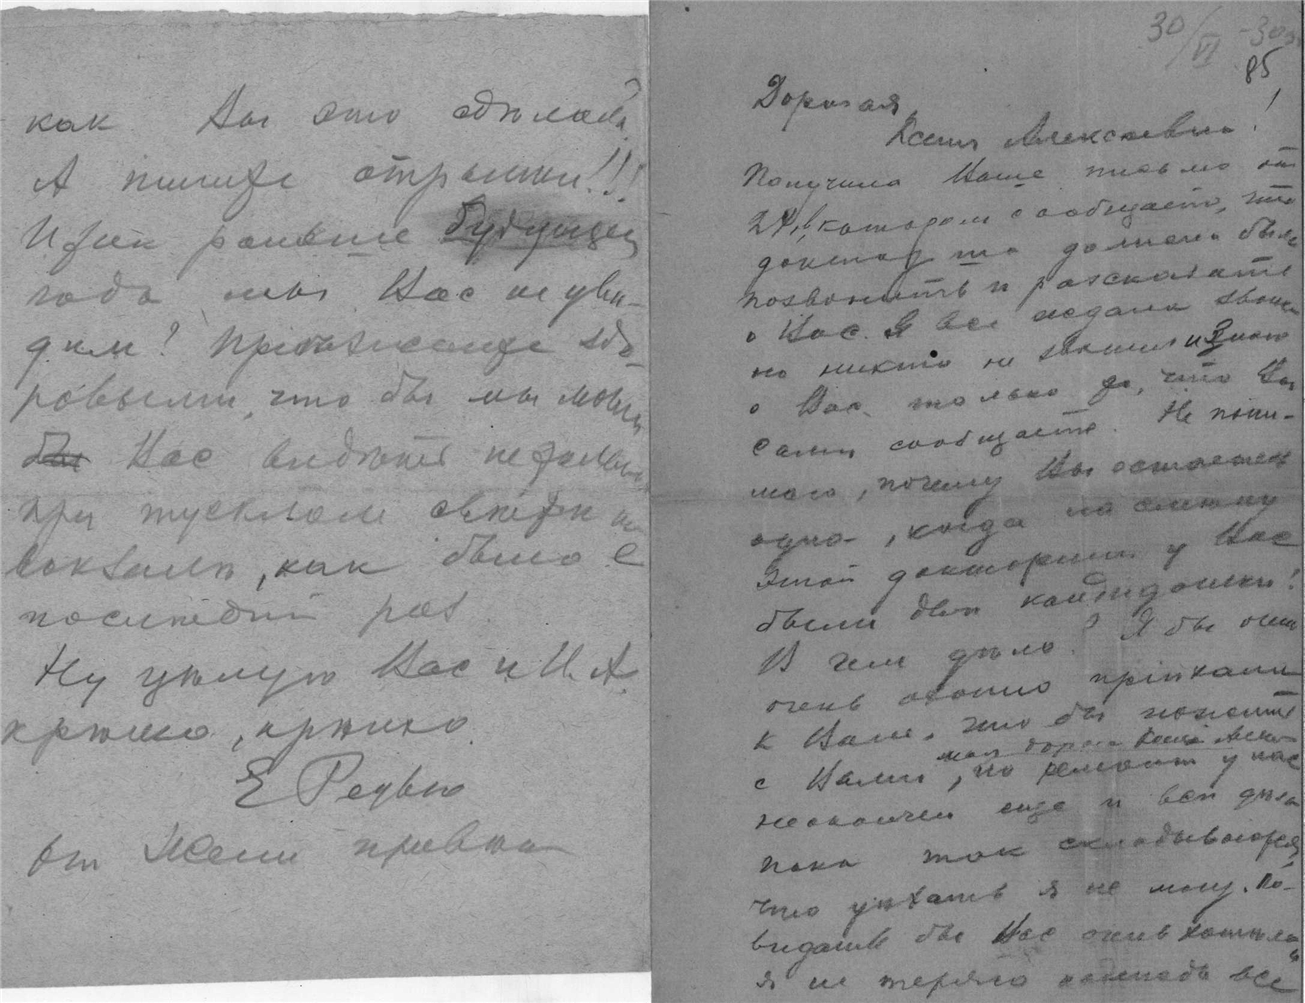 как Вы это сдѣлаете.
А пишите открытки!!!
раньше будущего
года мы Вас не уви-
дим? Приезжайте здо-
ровыми, что бы мы могли
бы Вас видѣть не только
при тусклом свѣтѣ на
вокзалѣ, как было в
послѣдний раз.
Ну цѣлую Вас и И. А.
крѣпко, крѣпко.
Е Редько
от Жени привѣт
30/VI - 30
85
Дорогая
Ксения Алексеевна!
Получила Ваше письмо от
24, в котором сообщаете, что
доктор та должна была
позвонить и рассказать
о Вас. Я все ждала звонка
но никто не звонил и знаю
о Вас только то, что Вы
сами сообщаете. Не пони-
маю, почему Вы остаетесь
одна, когда на смену
этой докторши у Вас
были двѣ кандидатки!
В чем дѣло? Я бы очень
очень охотно приѣхала
к Вам, что бы пожить
моя дорогая Ксения Алек-
с Вами, но ремонт у нас
неокончен еще и все дѣла
пока так складываются,
что уѣхать я не могу. По-
видать бы Вас очень хотѣла и
я не теряю надежды все